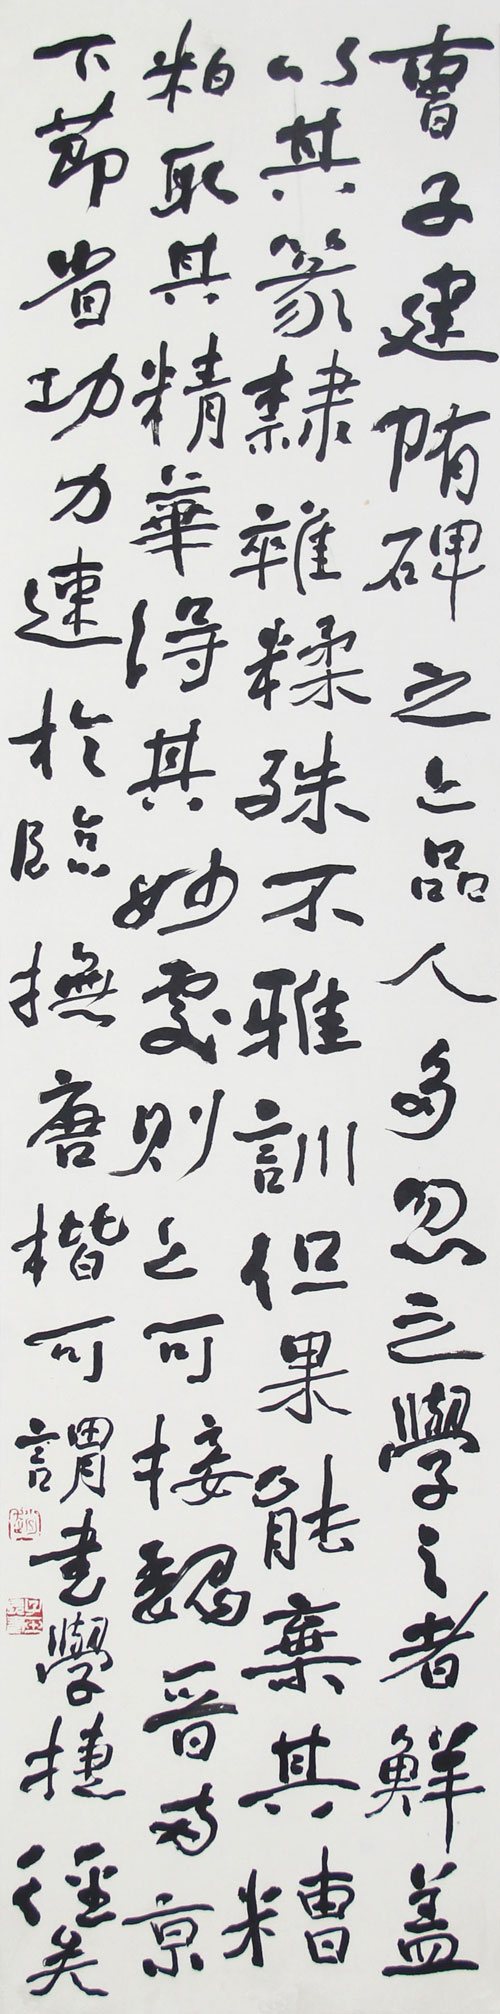 曹子建隋碑之上品人多忽之學之者鮮蓋
以其篆隸雜糅殊不雅訓但果能棄其糟
粕取其精華得其妙處則上可接魏晉兩京
下節省功力速於臨撫唐楷可謂書學捷徑矣